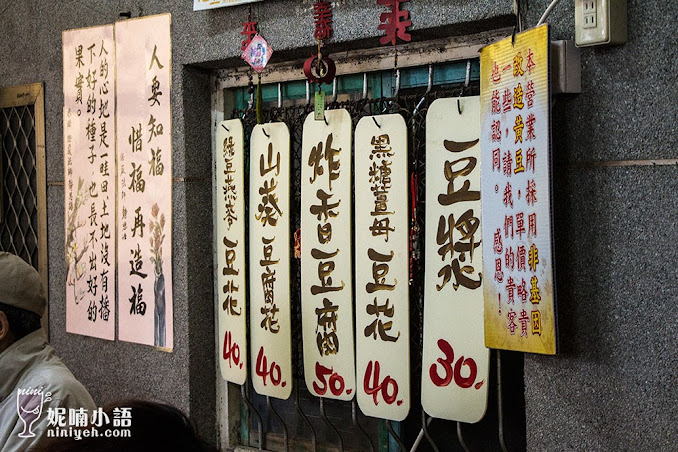 人要知福
惜福再造福
人的心地是一畦田土地沒有
下好的種子也長不出好的
果實。
綠豆燕麥豆花
40.
山葵豆腐花
40.
炸香豆腐
50.
黑糖薑母豆花
40.
豆漿
30.
本營業所採用非基因
改造黃豆,單價略貴
一些,請我們的貴客
也能認同。感恩!
nini
妮喃小語
niniyeh.com